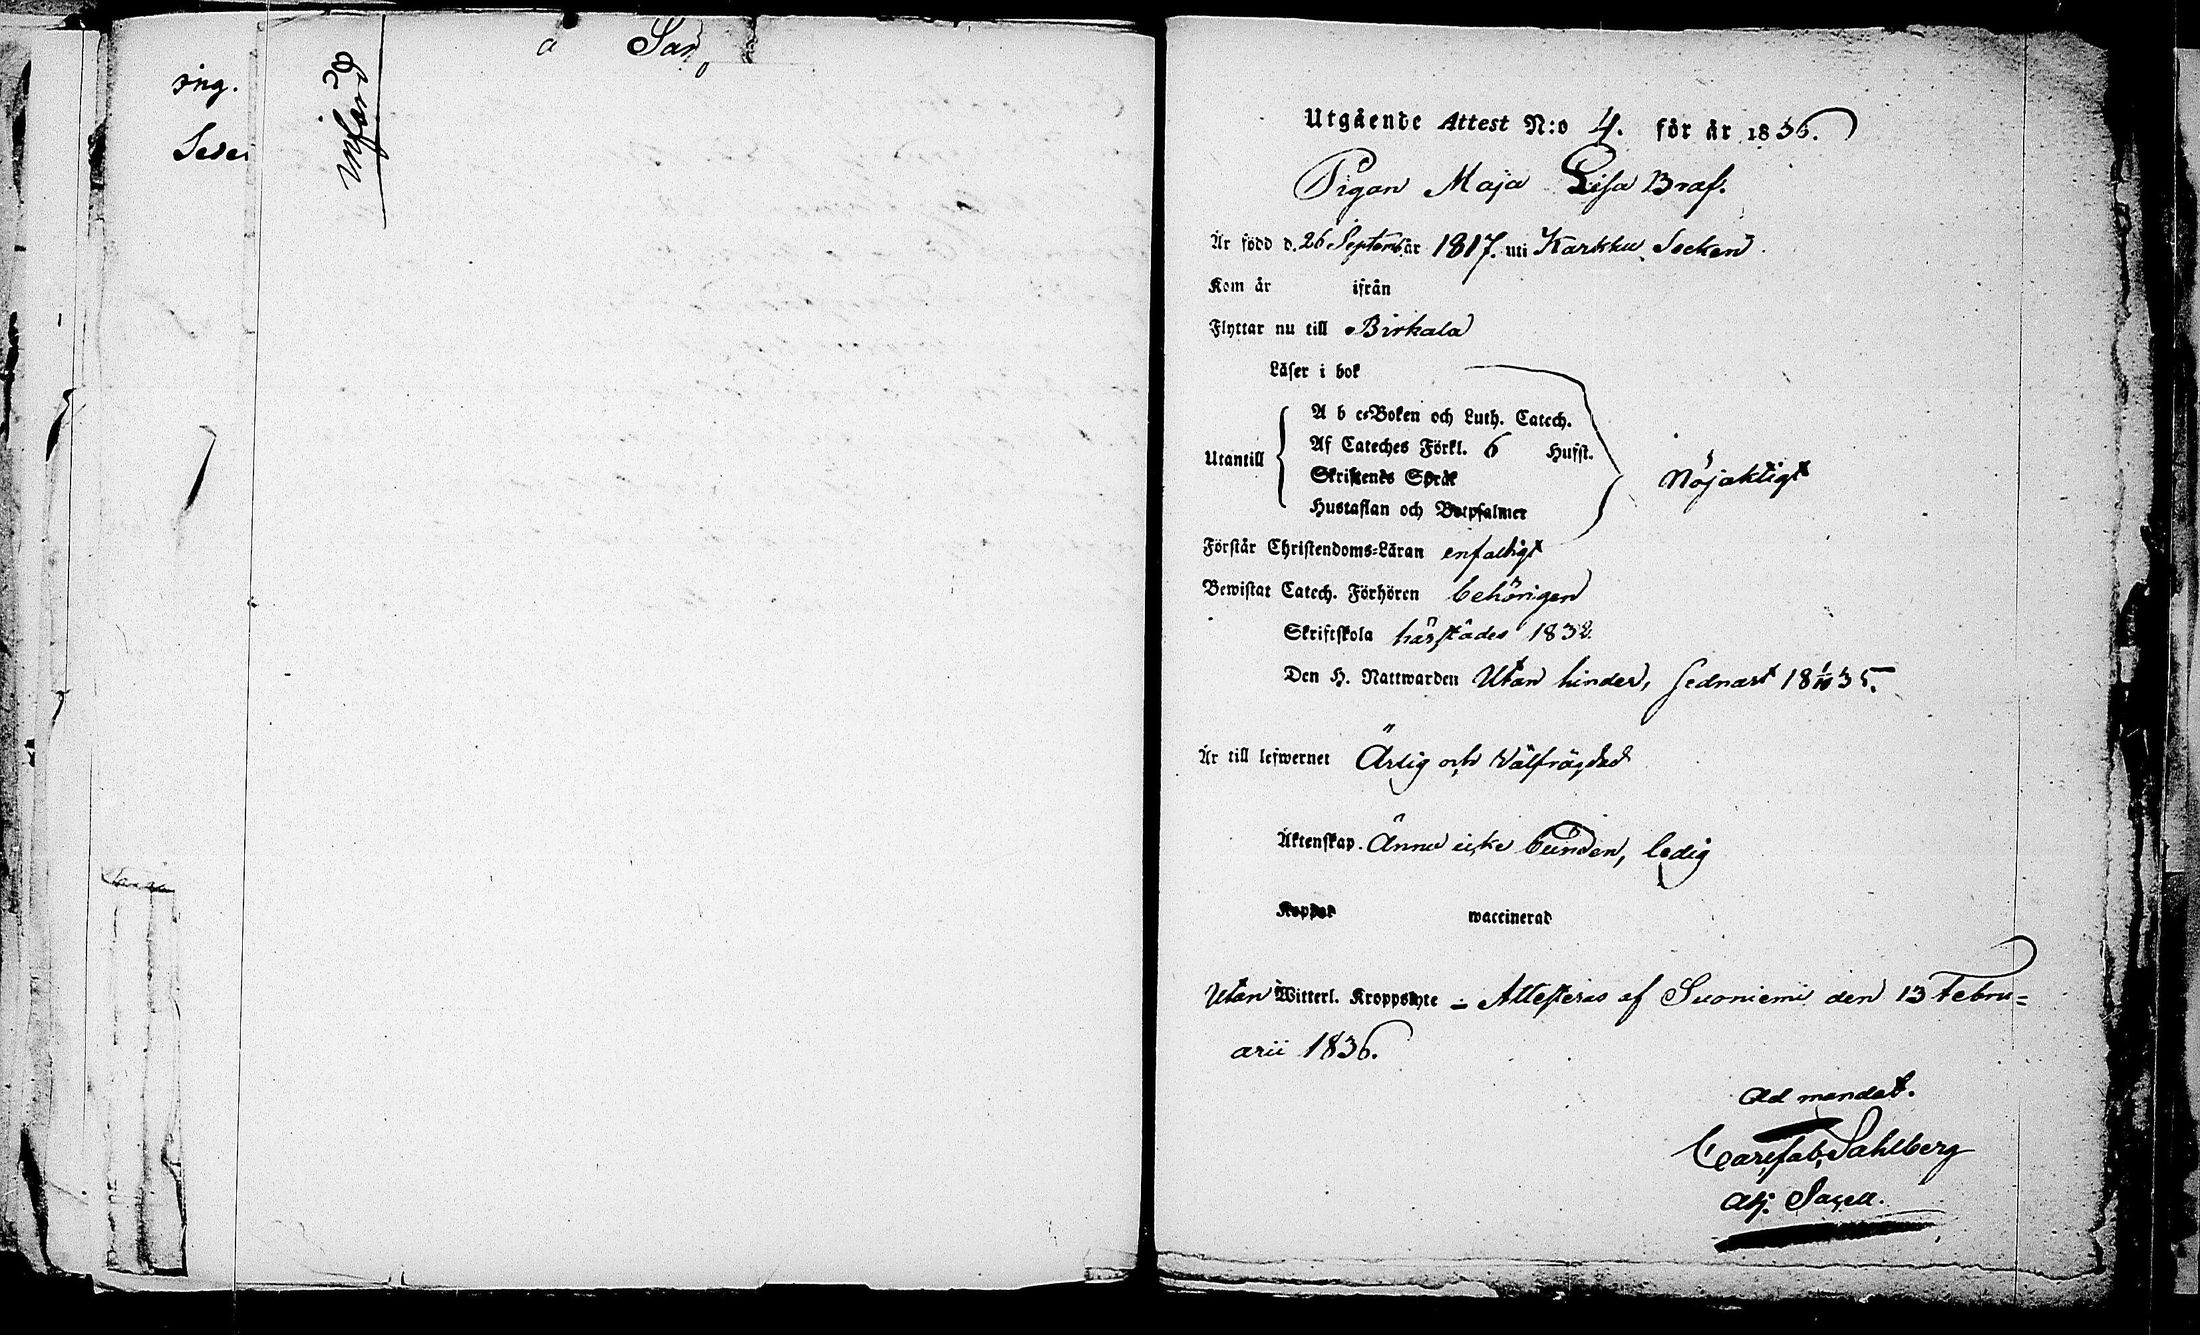 Sar
ing.
införd
Utgående Attest N:o 4. för år 1836.
Pigan Maja Lisa Braf.
Är född d. 26 Septemb. år 1817. uti Karkku Socken
Kom år ifrån
Flyttar nu till Birkala
Läser i bok
Utantill
A b c-Boken och Luth. Catech.
Af Cateches Förkl. 6 Hufst.
Skriftenes Språk
Hustaflan och Botpsalmer
Nöjaktigt
Förstår Christendoms-Läran enfaldigt
Bewistat Catech. Förhören behörigen
Skriftskola härstädes 1832.
Den H. Nattwarden Utan hinder, sednast 18 1/10 35.
Är till lefwernet Ärlig och Välfrägdad
Äktenskap. Ännu icke bunden, ledig
Koppor waccinerad
Utan Witterl. Kroppslyte - Attesteras af Suoniemi den 13 Febru=
arii 1836.
Ad mandat.
Carl Fab. Sahlberg
Adj. Sacell.